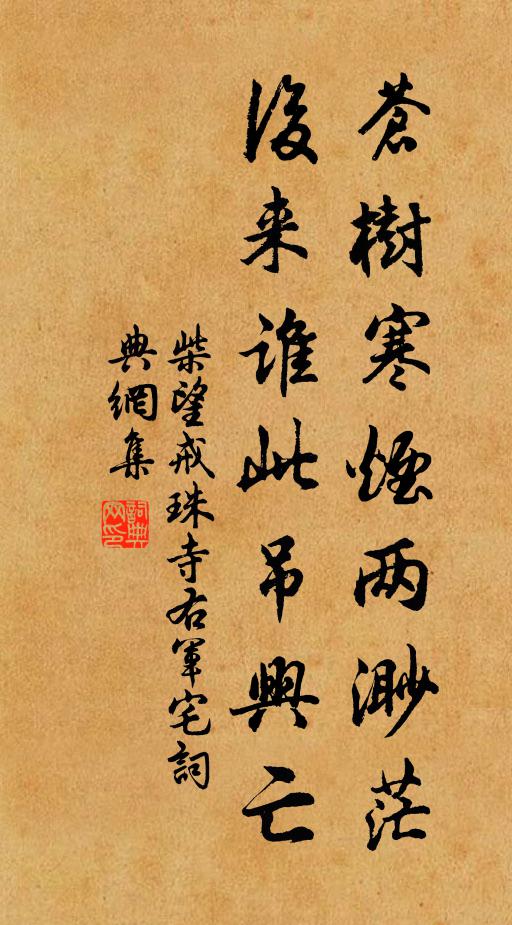 蒼樹寒煙两渺茫
後来誰此吊興亡
柴望戒珠寺右軍宅詞
典網集
詞典网印